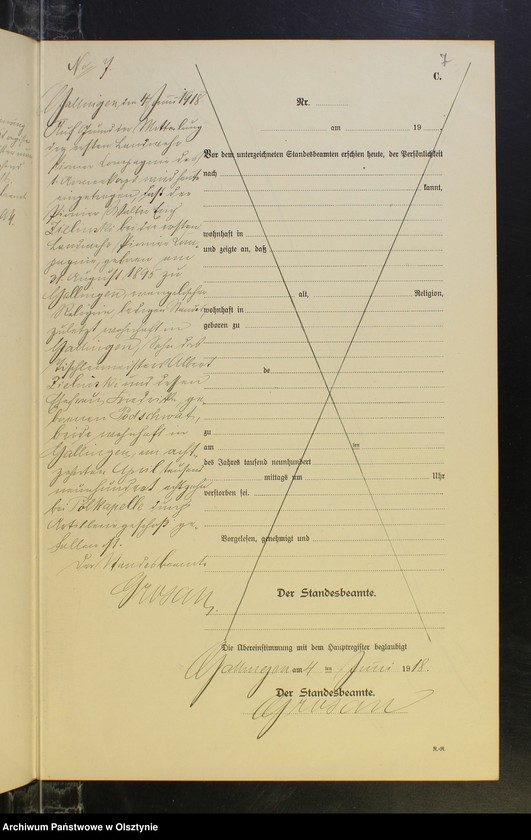 No 7
7
C.
Gallingen, den 4. Juni 1918
Auf Grund der Mitteilung
der ersten Landwehr
Pionier Compagnie des
1. Armeekorps wird heute
eingetragen, daß der
Pionier Walter Erich
Zielinski bei der ersten
Landwehr, Pionier Com-
pagnie, geboren am
31. August 1895 zu
Gallingen, evangelischer
Religion, ledigen Standes
zuletzt wohnhaft in
Gallingen, Sohn des
Tischlermeisters Albert
Zielinski und dessen
Ehefrau, ge-
borenen Podschwat,
beide wohnhaft in
Gallingen, am acht-
zehnten April tausend
neunhundert achtzehn
bei Pölkapelle durch
Artilleriegeschoß ge-
fallen ist.
Der Standesbeamte
Grosan
Nr.
am 19
Vor dem unterzeichneten Standesbeamten erschien heute, der Persönlichkeit
nach
kannt,
wohnhaft in
und zeigte an, daß
alt, Religion,
wohnhaft in
geboren zu
de
zu
am ten
des Jahres tausend neunhundert
mittags um Uhr
verstorben sei.
Vorgelesen, genehmigt und
Der Standesbeamte.
Die Übereinstimmung mit dem Hauptregister beglaubigt
Gallingen am 4 ten Juni 1918.
Der Standesbeamte.
Grosan
Archiwum Państwowe w Olsztynie